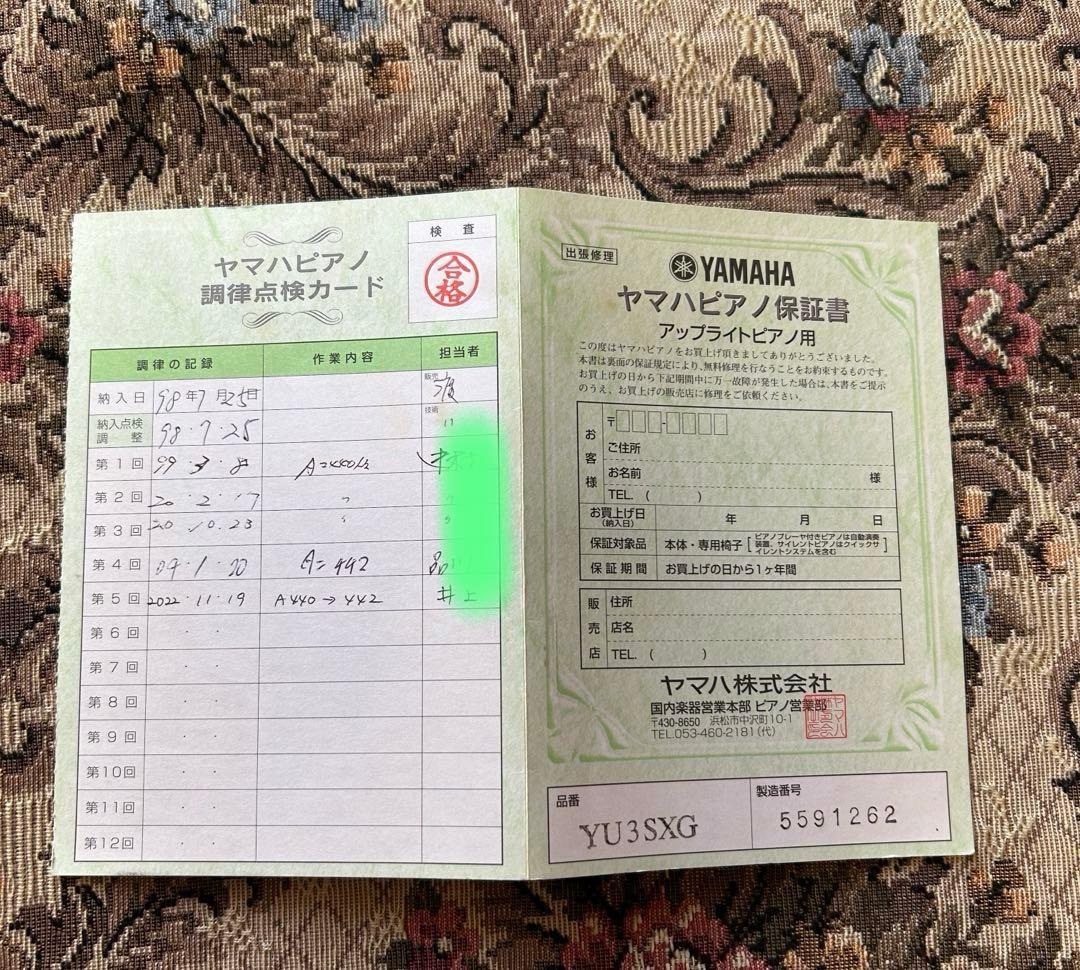 ヤマハピアノ
調律点検カード
検査
合格
調律の記録 作業内容 担当者
納入日 98年7月25日 販売
納入点検調整 98・7・25 技術 〃
第1回 99・3・8 A=440Hz
第2回 20・2・17 〃
第3回 20 10.23 〃
第4回 09・1・20 A=442 品
第5回 2022・11・19 A440→442 井上
第6回 ・ ・
第7回 ・ ・
第8回 ・ ・
第9回 ・ ・
第10回 ・ ・
第11回 ・ ・
第12回 ・ ・
出張修理
YAMAHA
ヤマハピアノ保証書
アップライトピアノ用
この度はヤマハピアノをお買上げ頂きましてありがとうございました。
本書は裏面の保証規定により、無料修理を行なうことをお約束するものです。
お買上げの日から下記期間中に万一故障が発生した場合は、本書をご提示
のうえ、お買上げの販売店に修理をご依頼ください。
お客様
〒 -
ご住所
お名前 様
TEL. ( )
お買上げ日(納入日) 年 月 日
保証対象品 本体・専用椅子 [ピアノプレーヤ付きピアノは自動演奏
装置、サイレントピアノはクイックサ
イレントシステムを含む]
保証期間 お買上げの日から1ヶ年間
販売店
住所
店名
TEL. ( )
ヤマハ株式会社
国内楽器営業本部 ピアノ営業部
〒430-8650 浜松市中沢町10-1
TEL.053-460-2181(代)
品番 YU3SXG
製造番号 5591262